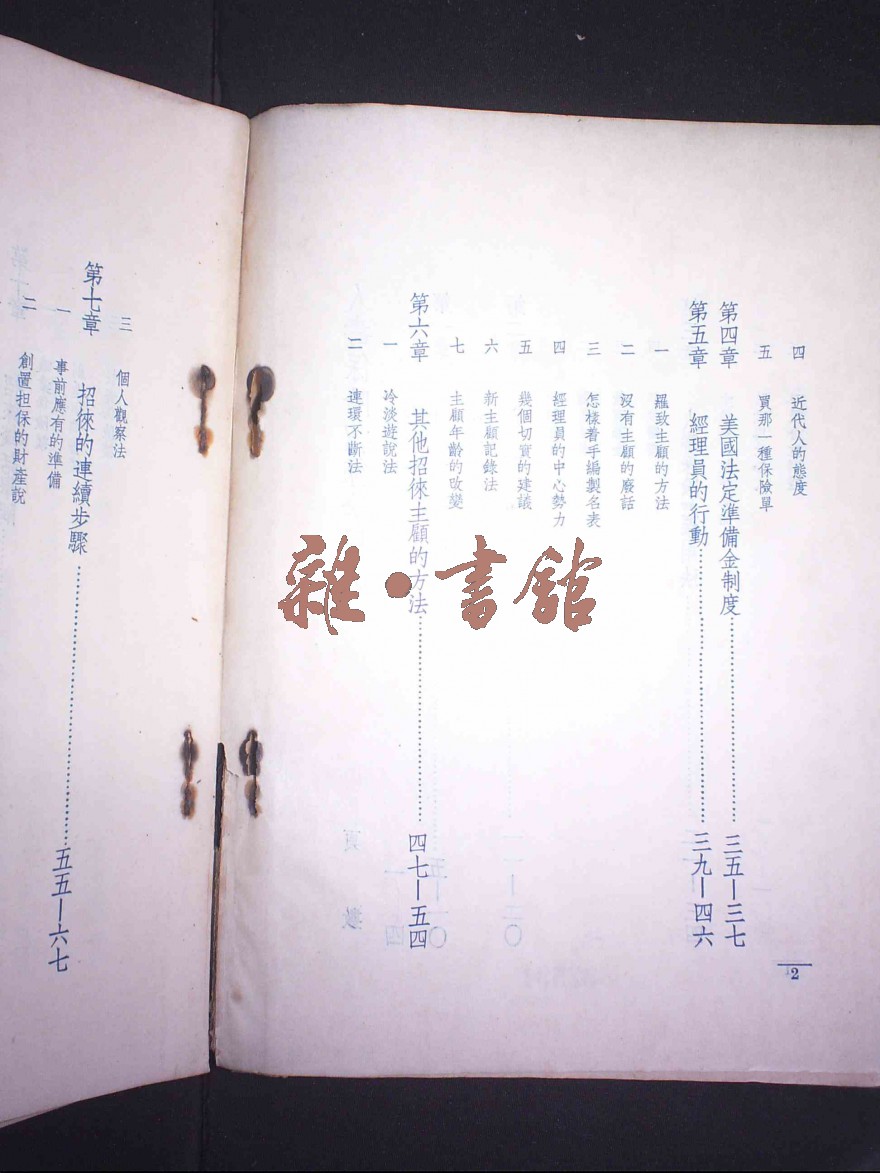 四 近代人的態度
五 買那一種保險單
第四章 美國法定準備金制度……三五—三七
第五章 經理員的行動……三九—四六
一 羅致主顧的方法
二 沒有主顧的廢話
三 怎樣着手編製名表
四 經理員的中心勢力
五 幾個切實的建議
六 新主顧記錄法
七 主顧年齡的改變
第六章 其他招徠主顧的方法……四七—五四
一 冷淡遊說法
二 連環不斷法
2
三 個人觀察法
第七章 招徠的連續步驟……五五—六七
一 事前應有的準備
二 創置担保的財產說
雜·書館